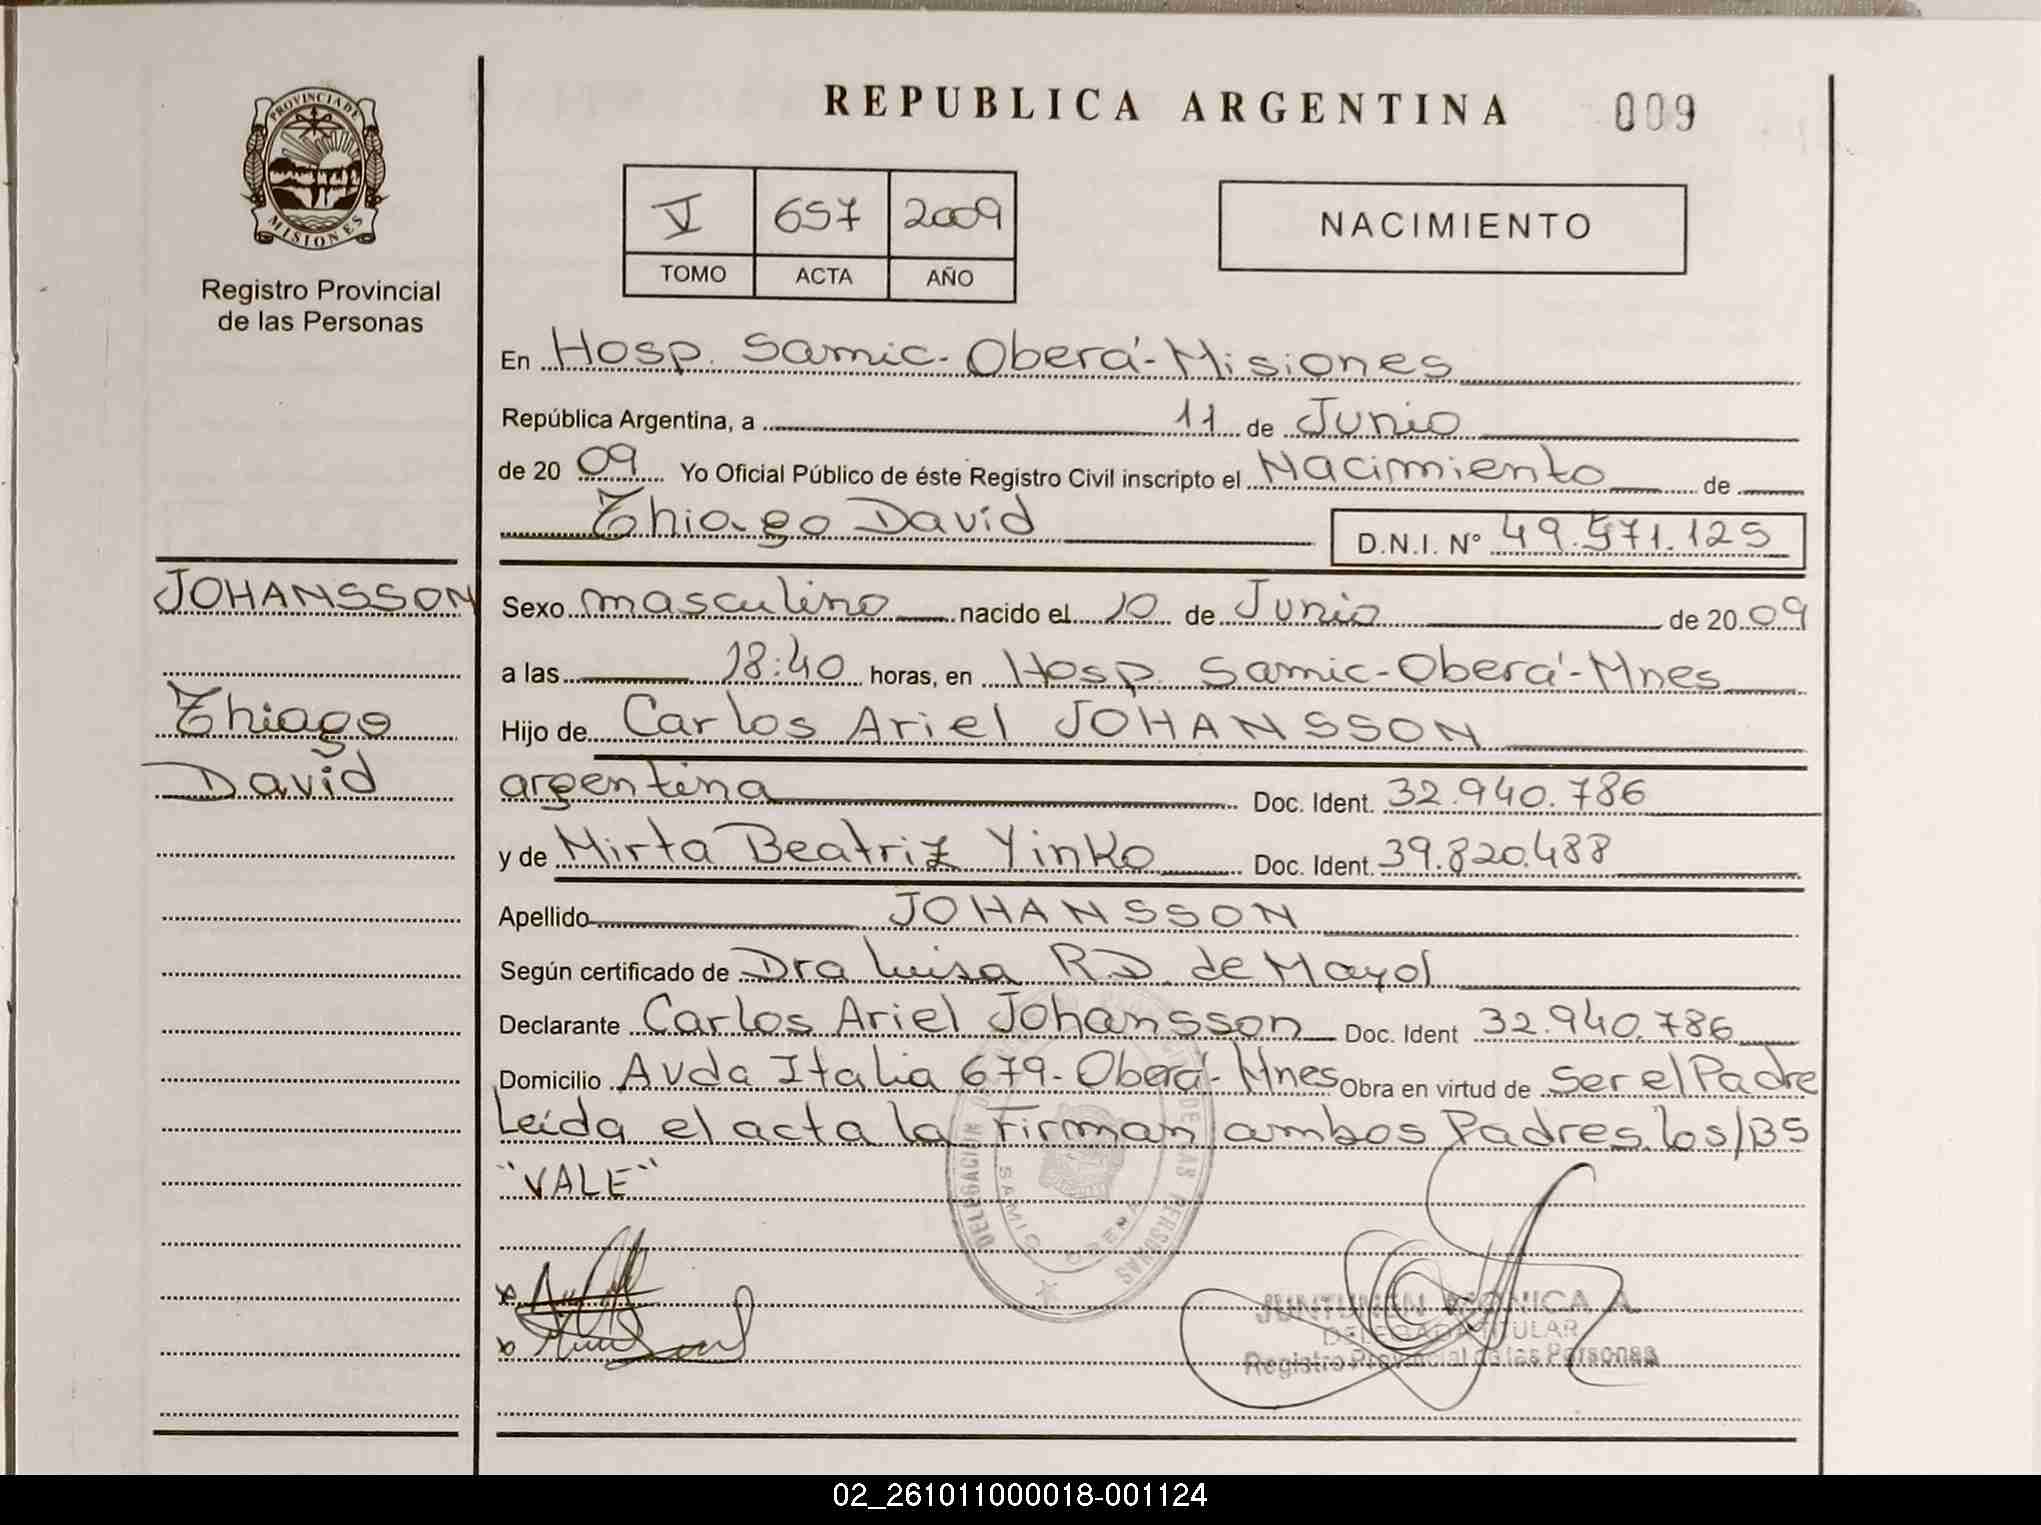 REPUBLICA ARGENTINA 009
PROVINCIA DE
MISIONES
Registro Provincial
de las Personas
V 657 2009
TOMO ACTA AÑO
NACIMIENTO
En Hosp. Samic - Oberá - Misiones
República Argentina, a 11 de Junio
de 20 09 Yo Oficial Público de éste Registro Civil inscripto el Nacimiento de
Thiago David D.N.I. Nº 49.571.125
JOHANSSON
Thiago
David
Sexo masculino nacido el 10 de Junio de 20 09
a las 18:40 horas, en Hosp. Samic - Oberá - Mnes
Hijo de Carlos Ariel JOHANSSON
argentina Doc. Ident. 32.940.786
y de Mirta Beatriz Yinko Doc. Ident. 39.820.488
Apellido JOHANSSON
Según certificado de Dra Luisa R.D. de Mayol
Declarante Carlos Ariel Johansson Doc. Ident 32.940.786
Domicilio Avda Italia 679 - Oberá - Mnes Obra en virtud de Ser el Padre
Leída el acta la Firman ambos Padres. los/BS
"VALE"
DELEGACIÓN DE LAS PERSONAS
SAMIC OBERA
JUNTUNEN MONICA A.
DELEGADA TITULAR
Registro Provincial de las Personas
02_261011000018-001124